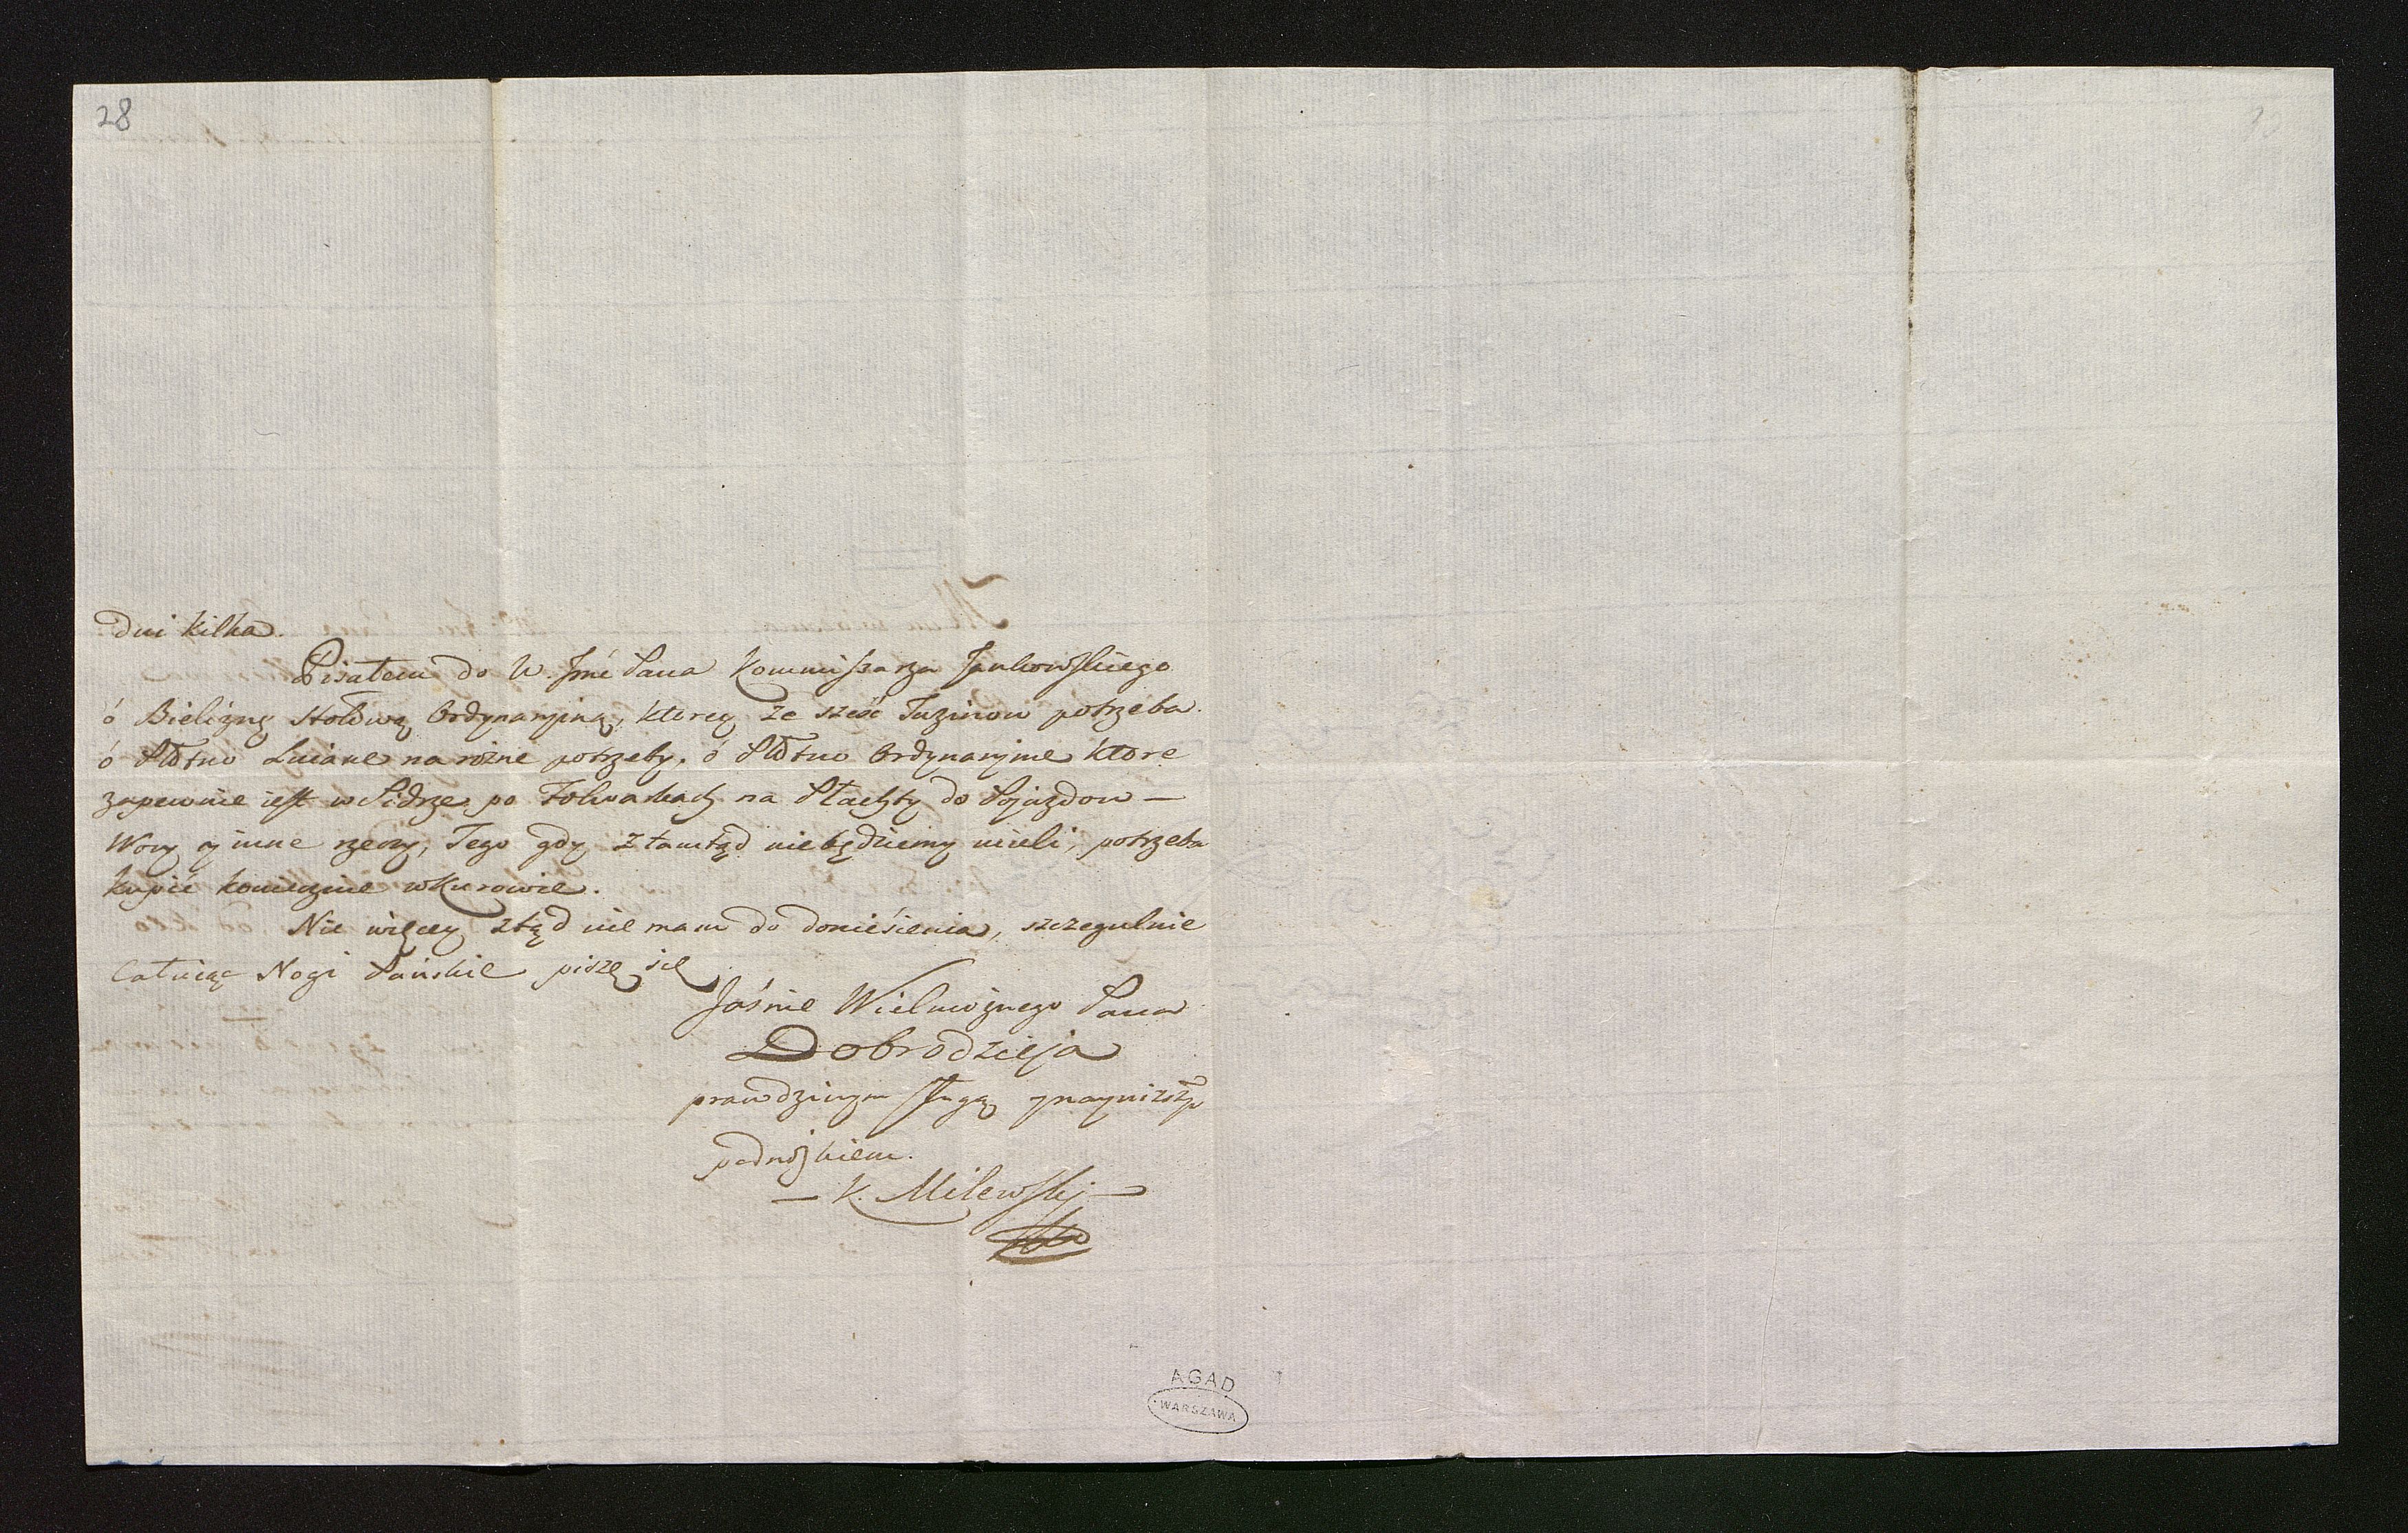 28
dni kilka.
Pisałem do W. Jmć Pana Kommissarza Jankowskiego
ó Bieliznę stołową Ordynaryiną, ktorey ze sześć Tuzinow potrzeba.
ó Płotno Lniane na rożne potrzeby. ó Płotno Ordynaryine ktore
zapewnie iest w Sidrze po Folwarkach na Płachty do Pojazdow —
Wory y inne rzeczy, Tego gdy ztamtąd niebędziemy mieli, potrzeba
kupić koniecznie wKurowie.
Nic więcey ztąd nie mam do doniesienia, szczegulnie
Całuiąc Nogi Pańskie piszę się
Jaśnie Wielmożnego Pana
Dobrodzieja
prawdziwym sługą ynayniższym
podnóżkiem.
— K. Milewskj —
AGAD
WARSZAWA